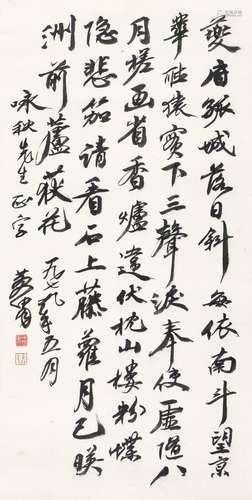 夔府孤城落日斜每依南斗望京
華聽猿實下三聲淚奉使虛隨八
月槎画省香爐違伏枕山樓粉堞
隐悲笳請看石上藤蘿月已映
洲前蘆荻花
咏秋先生正字
一九七九年五月